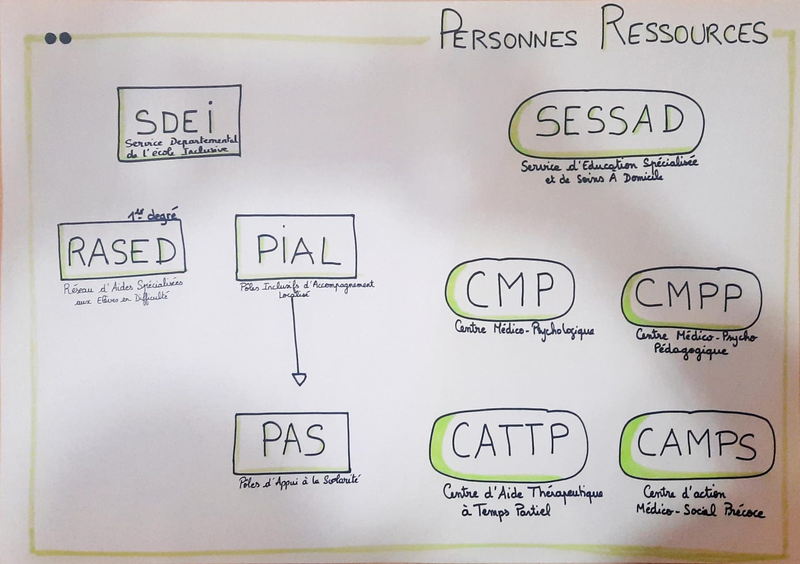 PERSONNES RESSOURCES
SDEi
Service Departemental
de l'école Inclusive
SESSAD
Service d'Education Spécialisée
et de Soins A Domicile
1er degré
RASED
Réseau d'Aides Spécialisées
aux Elèves en Difficulté
PiAL
Pôles Inclusifs d'Accompagnement
Localisé
CMP
Centre Médico-Psychologique
CMPP
Centre Médico-Psycho
Pédagogique
PAS
Pôles d'Appui à la Scolarité
CATTP
Centre d'Aide Thérapeutique
à Temps Partiel
CAMPS
Centre d'action
Médico-Social Précoce